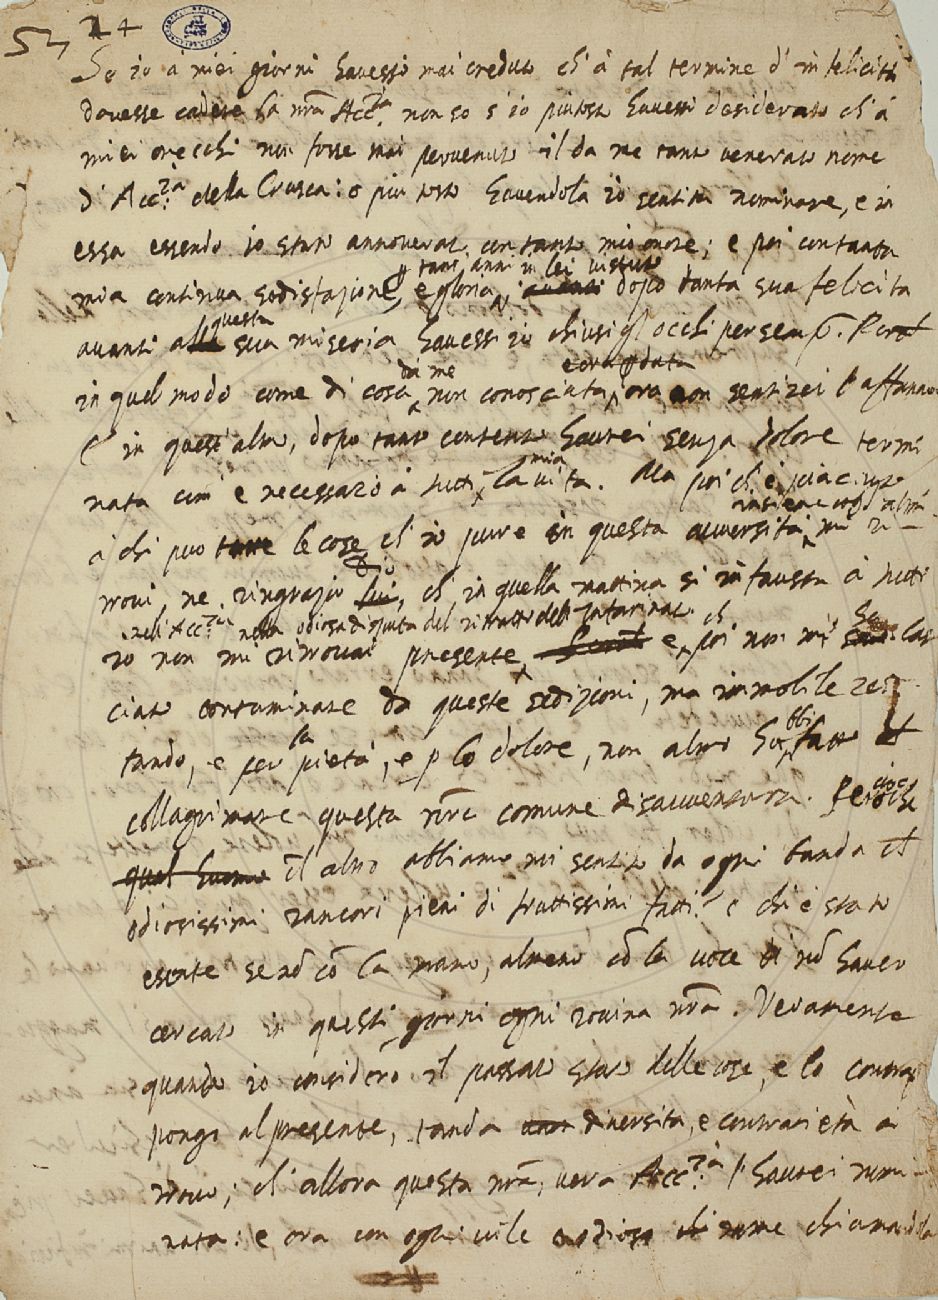 53 24
So io a miei giorni havessi mai creduto ch' à tal termine d' infelicità
dovesse cadere la nrā Acc.ia non so s' io piutosto havessi desiderato ch' à
miei orecchi non fosse mai pervenuto il da me tanto venerato nome
d' Acc.ia della Crusca: o piu tosto havendola io sentita nominare, e in
essa essendo io stato annoverato con tanto mio onore; e poi con tanta
tanti anni in lei vissuto
mia continua sodisfazione, e gloria, avanti dopo tanta sua felicità
questa
avanti alla sua miseria havessi io chiusi gl' occhi per sempr.
da me
in quel modo come di cosa non conosciuta, ora non sentirei l' affanno
in quest' altro, dopo tanto contento haurei senza dolore termi
mia
nata com' è necessario à tutti la vita. Ma poi ch' è piaciuto
insieme
à chi puo le cose ch' io pure in questa avversità mi ri
trovi, ne ringrazio lui, ch' in quella mattina si infausta à tutti
nell' Acc.ia nella odiosa disputa del ritratto dell' Infarinato
io non mi ritrovai presente, e poi non mi las
ciato contaminare da queste sedizioni, ma immobile res
la
tando, e per pietà, e p lo dolore, non altro fatto
collagrimare questa nrā comune disavventura.
quel huomo altro abbiamo noi sentito da ogni banda
odiosissimi rancori pieni di fatti? e chi è stato
esente se nō cō la mano, almeno cō la voce di nō haver
cercato in questi giorni ogni rovina nrā. Veramente
quando io considero il passato stato delle cose, e lo contrap
pongo al presente, tanta diversità, e contrarietà ci
trovo; ch' allora questa nrā, vera Acc.ia l' haurei nomi
nata: e ora con ogni vile odioso nome chiamandola